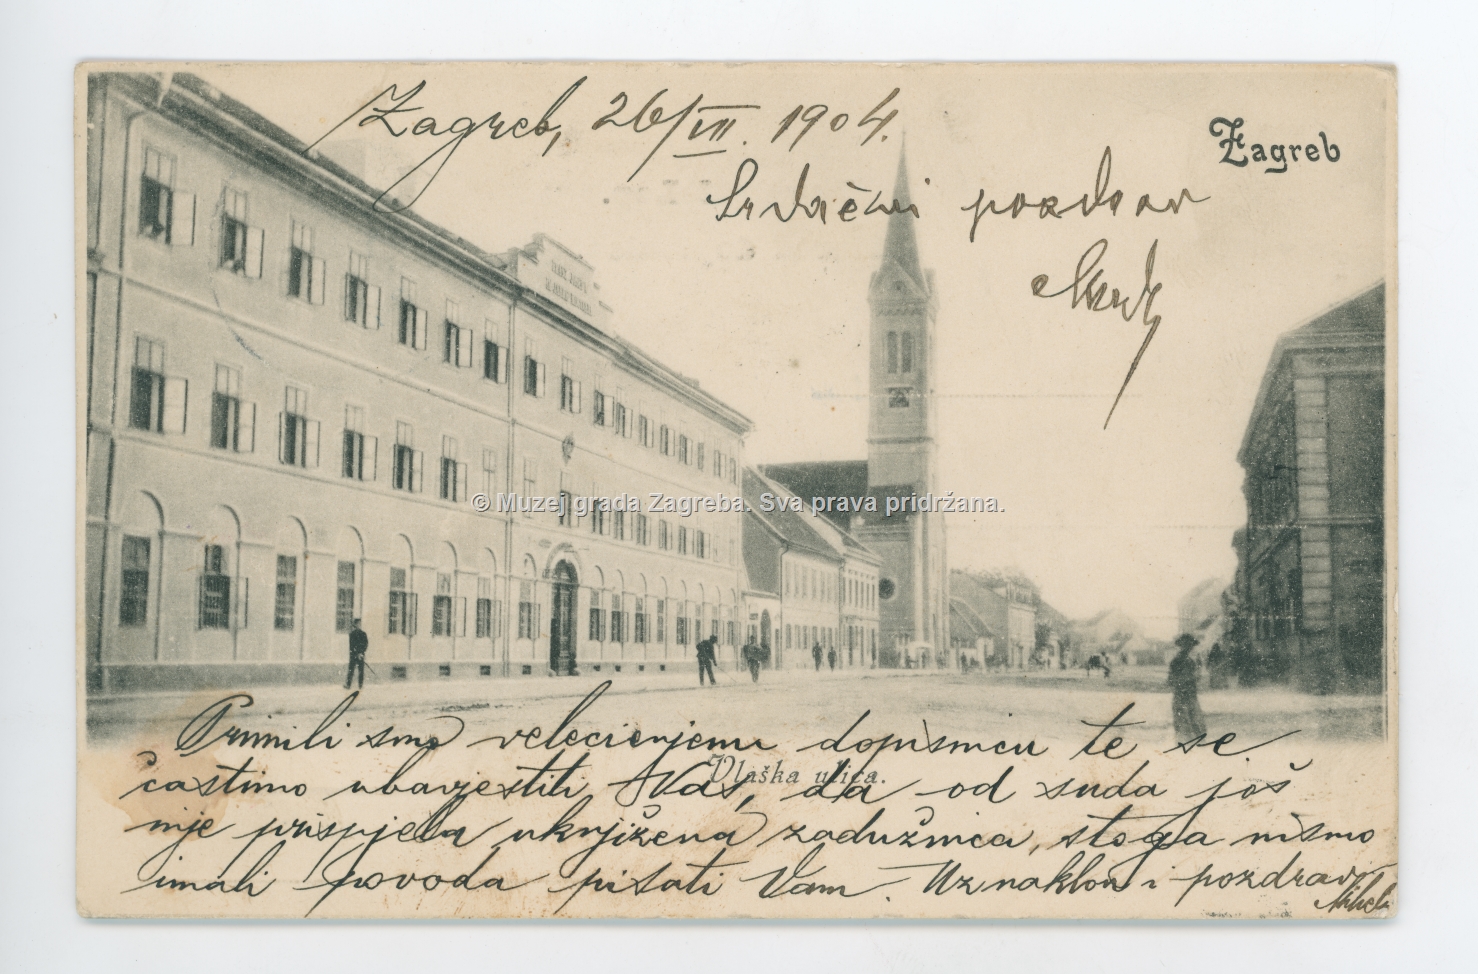 Zagreb, 26/VII. 1904.
Zagreb
Srdačni pozdrav
© Muzej grada Zagreba. Sva prava pridržana.
Primili smo velecienjenu dopisnicu te se
Vlaška ulica.
častimo ubavjestiti Vas, da od suda još
nije prispjela uknjižena zadužnica, stoga nismo
imali povoda pisati Vam. Uz naklon i pozdrav